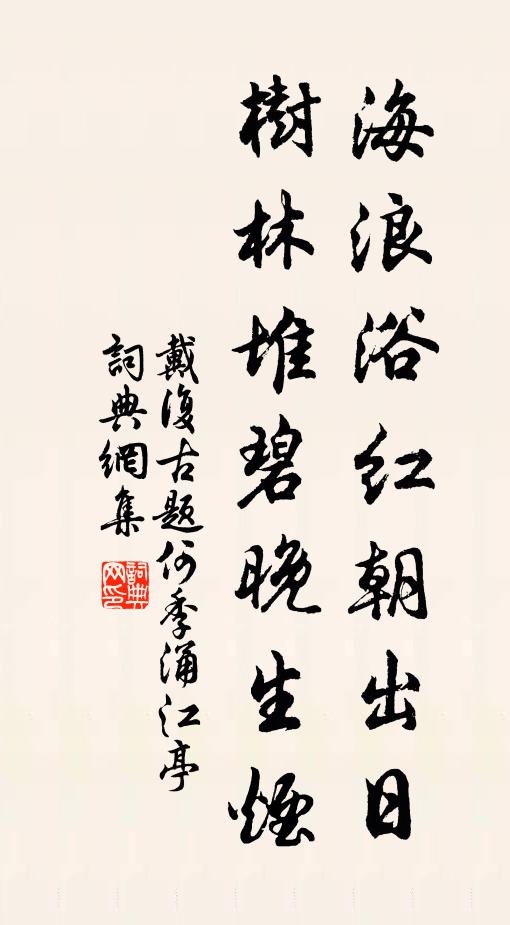 海浪浴红朝出日
樹林堆碧晚生煙
戴復古题何季涌江亭
詞典網集
詞典网印